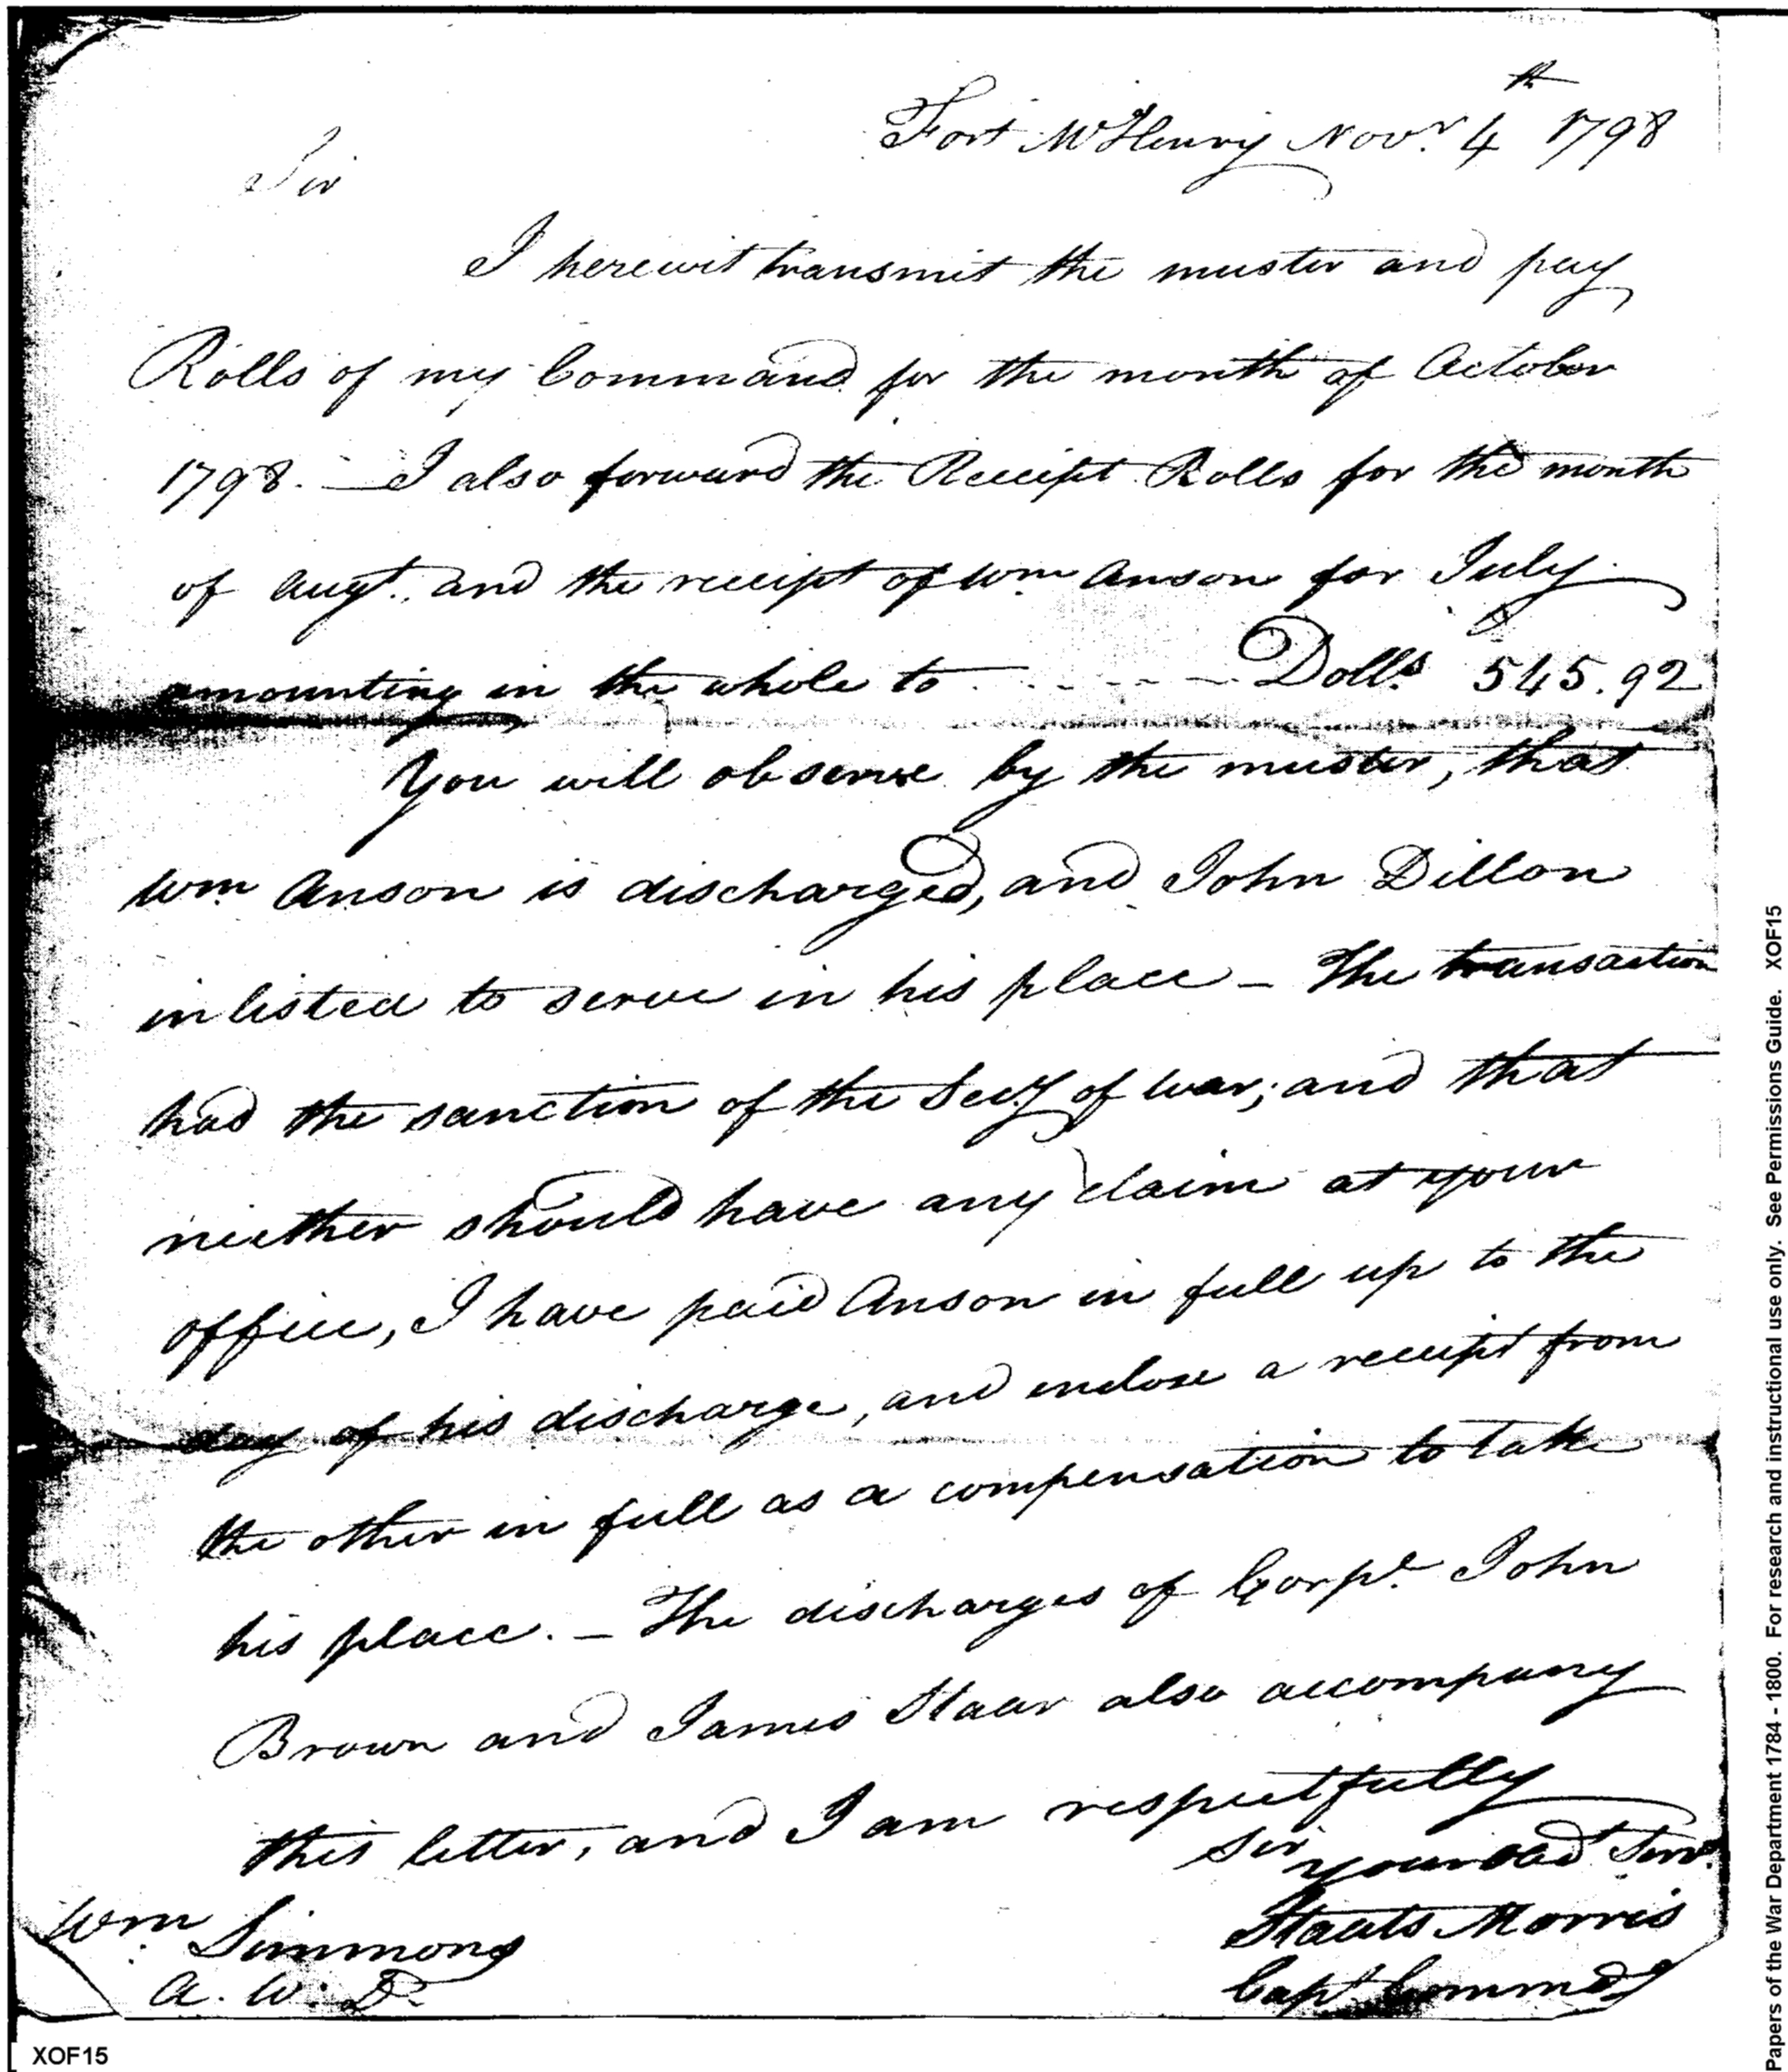 Fort McHenry Novr. 4th 1798
Sir
I herewit transmit the muster and pay
Rolls of my Command for the month of October
1798. — I also forward the Receipt Rolls for the month
of Augt. and the receipt of Wm Anson for July
amounting in the whole to . . . . - - - Dolls. 545.92
You will observe by the muster, that
Wm Anson is discharged, and John Dillon
inlisted to serve in his place – The transaction
had the sanction of the Secy of War; and that
neither should have any claim at your
office, I have paid Anson in full up to the
day of his discharge, and inclose a receipt from
the other in full as a compensation to take
his place. – The discharges of Corpl. John
Brown and James Staar also accompany
this letter, and I am respectfully
Sir
your obd Servt.
Staats Morris
Capt. Commdg
Wm. Simmons
A. W. D.
XOF15
Papers of the War Department 1784 - 1800. For research and instructional use only. See Permissions Guide. XOF15